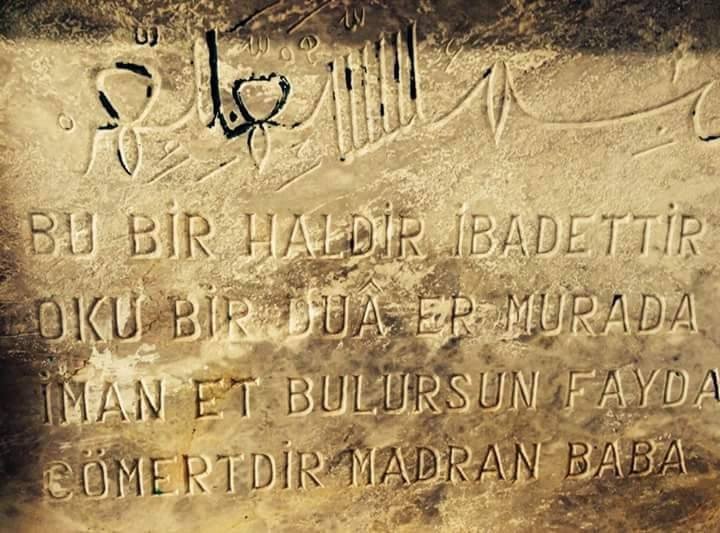 بسم الله الرحمن الرحيم
BU BİR HALDİR İBADETTİR
OKU BİR DUÂ ER MURADA
İMAN ET BULURSUN FAYDA
CÖMERTDİR MADRAN BABA